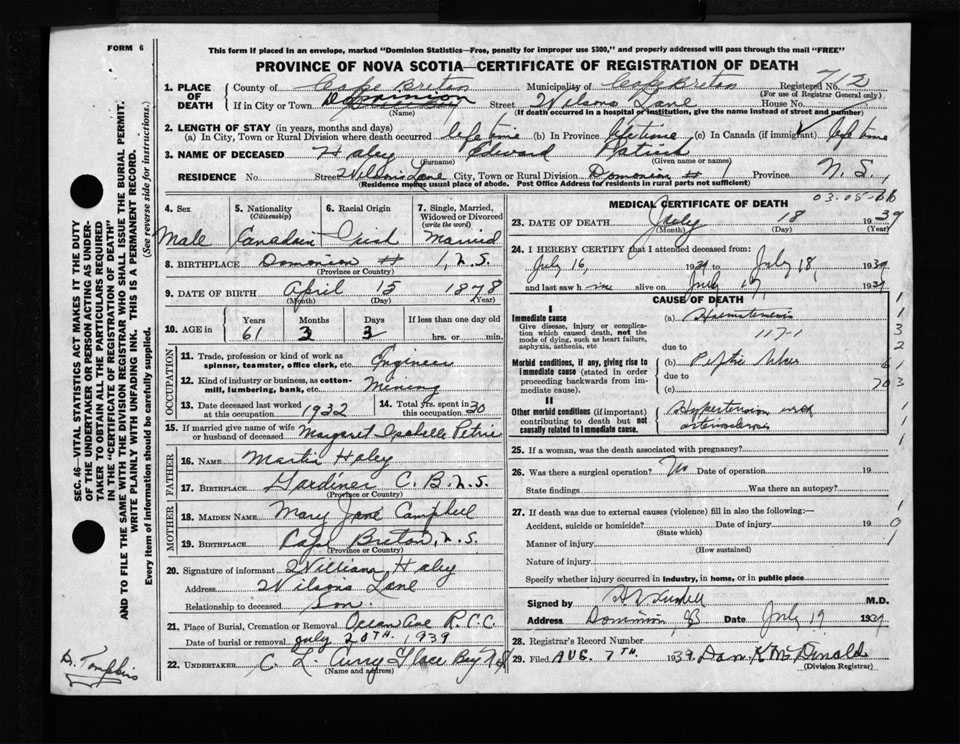 FORM 6
This form if placed in an envelope, marked "Dominion Statistics—Free, penalty for improper use $300," and properly addressed will pass through the mail "FREE"
PROVINCE OF NOVA SCOTIA—CERTIFICATE OF REGISTRATION OF DEATH
1. PLACE OF DEATH
County of Cape Breton Municipality of Cape Breton Registered No. 712
(For use of Registrar General only)
If in City or Town Dominion Street Wilsons Lane House No.
(Name) (If death occurred in a hospital or institution, give the name instead of street and number)
2. LENGTH OF STAY (in years, months and days)
(a) In City, Town or Rural Division where death occurred life time (b) In Province life time (c) In Canada (if immigrant) life time
3. NAME OF DECEASED Haley Edward Patrick
(Surname) (Given name or names)
RESIDENCE No. Street Wilsons Lane City, Town or Rural Division Domonion # 1 Province N. S.
(Residence means usual place of abode. Post Office Address for residents in rural parts not sufficient)
4. Sex
Male
5. Nationality
(Citizenship)
Canadain
6. Racial Origin
Irish
7. Single, Married, Widowed or Divorced
(write the word)
Married
8. BIRTHPLACE Domonion # 1, N.S.
(Province or Country)
9. DATE OF BIRTH April 15 1878
(Month) (Day) (Year)
10. AGE in
Years Months Days If less than one day old
61 3 3 hrs. or min.
OCCUPATION
11. Trade, profession or kind of work as spinner, teamster, office clerk, etc. Engineer
12. Kind of industry or business, as cotton-mill, lumbering, bank, etc. Mining
13. Date deceased last worked at this occupation 1932
14. Total yrs. spent in this occupation 30
15. If married give name of wife or husband of deceased Margaret Isabelle Petrie
FATHER
16. NAME Martin Haley
17. BIRTHPLACE Gardiner C. B. N.S.
(Province or Country)
MOTHER
18. MAIDEN NAME Mary Jane Campbell
19. BIRTHPLACE Cape Breton, N.S.
(Province or Country)
20. Signature of informant William Haley
Address Wilsons Lane
Relationship to deceased Son.
21. Place of Burial, Cremation or Removal Ocean Ave R.C.C.
Date of burial or removal July 20TH. 1939
22. UNDERTAKER C. L. Curry Glace Bay N.S.
(Name and address)
MEDICAL CERTIFICATE OF DEATH
03-05-66
23. DATE OF DEATH July 18 1939
(Month) (Day) (Year)
24. I HEREBY CERTIFY that I attended deceased from:
July 16, 1939 to July 18, 1939
and last saw him alive on July 17, 1939
CAUSE OF DEATH
I
Immediate cause
Give disease, injury or complication which caused death, not the mode of dying, such as heart failure, asphyxia, asthenia, etc.
(a) Haematemesis
117-1
due to
Morbid conditions, if any, giving rise to immediate cause (stated in order proceeding backwards from immediate cause).
(b) Peptic Ulcer
due to
(c)
II
Other morbid conditions (if important) contributing to death but not causally related to immediate cause.
Hypertension with arteriosclerosis
25. If a woman, was the death associated with pregnancy?
26. Was there a surgical operation? No Date of operation 19
State findings Was there an autopsy?
27. If death was due to external causes (violence) fill in also the following:—
Accident, suicide or homicide? Date of injury 19
(State which)
Manner of injury
(How sustained)
Nature of injury
Specify whether injury occurred in industry, in home, or in public place
Signed by M.D.
Address Dominion Date July 19 1939
28. Registrar's Record Number
29. Filed AUG. 7TH. 1939 Dan K McDonald
(Division Registrar)
SEC. 46—VITAL STATISTICS ACT MAKES IT THE DUTY OF THE UNDERTAKER OR PERSON ACTING AS UNDERTAKER TO OBTAIN ALL THE PARTICULARS REQUIRED IN THE "CERTIFICATE OF REGISTRATION OF DEATH" AND TO FILE THE SAME WITH THE DIVISION REGISTRAR WHO SHALL ISSUE THE BURIAL PERMIT.
WRITE PLAINLY WITH UNFADING INK. THIS IS A PERMANENT RECORD.
Every item of information should be carefully supplied. (See reverse side for instructions.)
D. Tompkins